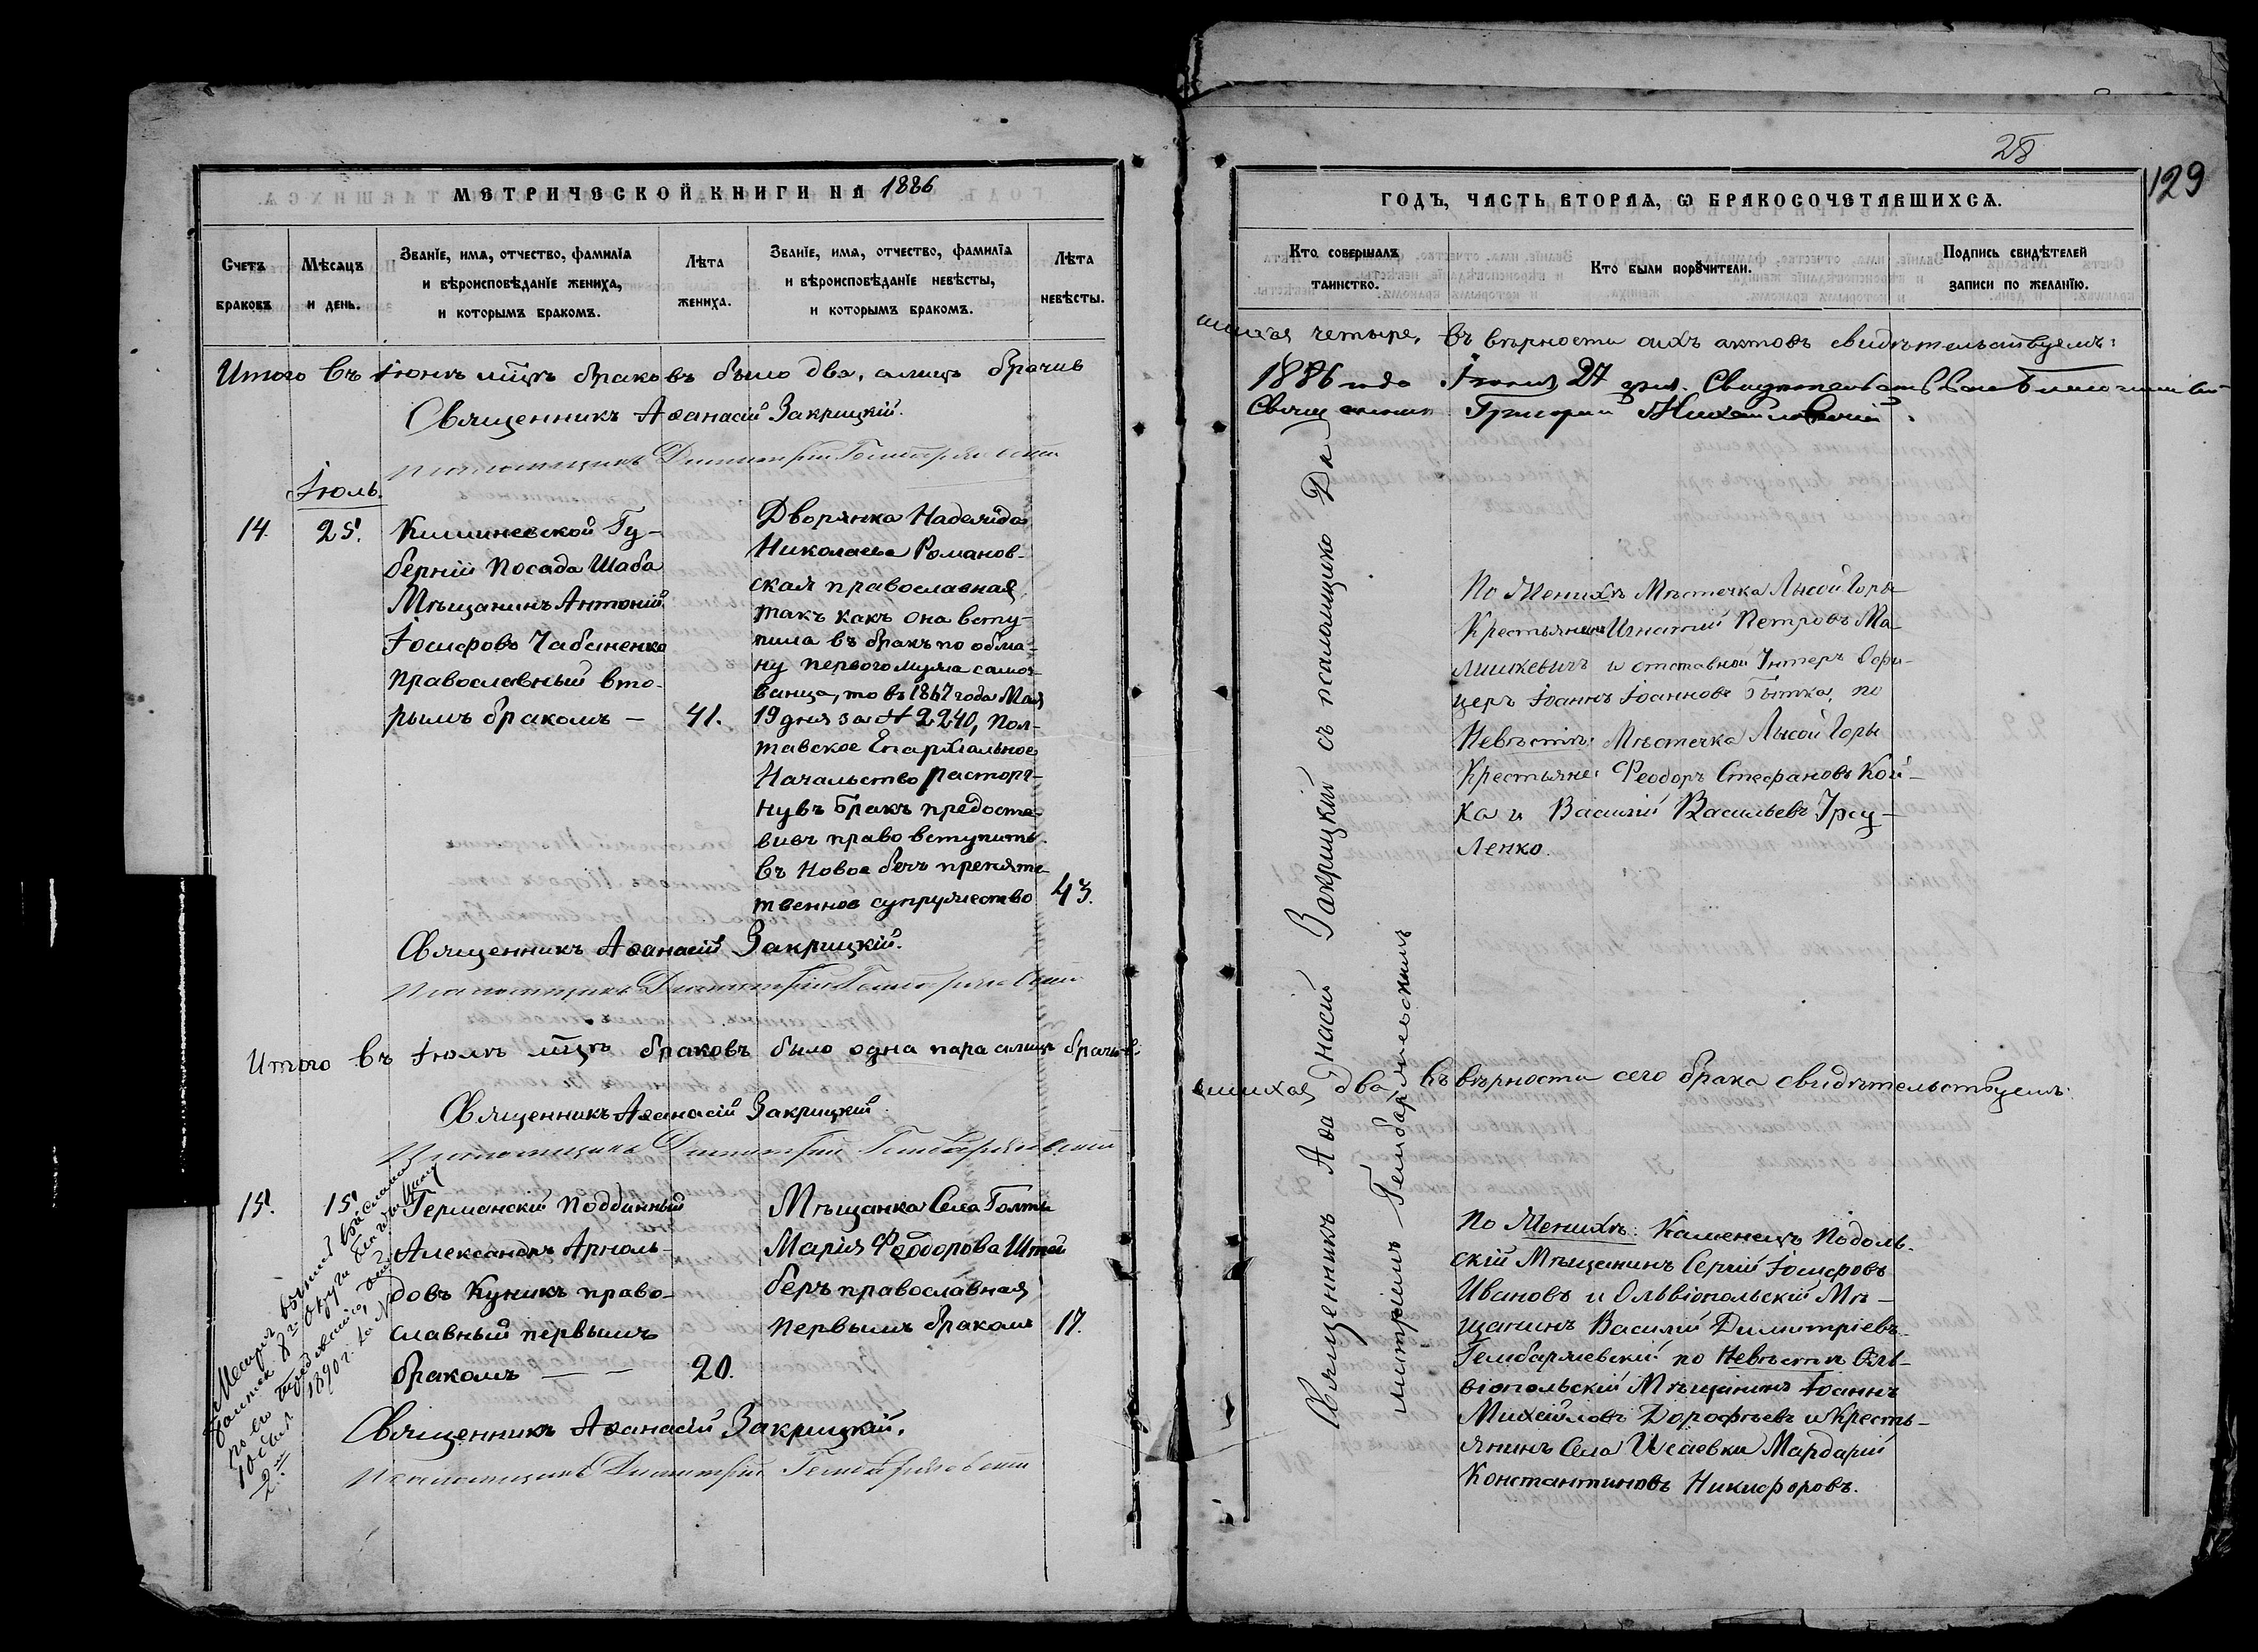 МЕТРИЧЕСКОЙ КНИГИ НА 1886
Счетъ браковъ
Мѣсяцъ и день.
Званіе, имя, отчество, фамилія
и вѣроисповѣданіе жениха,
и которымъ бракомъ.
Лѣта жениха.
Званіе, имя, отчество, фамилія
и вѣроисповѣданіе невѣсты,
и которымъ бракомъ.
Лѣта невѣсты.
Итого въ Іюнѣ мцѣ браковъ было два, а лицъ брачив
Священникъ Аѳанасій Закрицкій.
Псаломщикъ Димитрій Гембаржевскій
Іюль.
14. 25.
Кишиневской Гу-
берніи Посада Шаба
Мѣщанинъ Антоній
Іосифовъ Чабаненко
православный вто-
рымъ бракомъ — 41.
Дворянка Надежда
Николаева Романов-
ская православная
такъ какъ она всту-
пила въ бракъ по обма-
ну перваго мужа само-
званца, то въ 1867 года Мая
19 дня за № 2240, Пол-
тавское Епархіальное
Начальство расторг-
нувъ бракъ предоста-
вивъ право вступить
въ новое безъ препятс-
твенное супружество 43.
Священникъ Аѳанасій Закрицкій.
Псаломщикъ Димитрій Гембаржевскій
Итого въ Іюлѣ мцѣ браковъ было одна пара а лицъ брачив-
Священникъ Аѳанасій Закрицкій.
Псаломщикъ Димитрій Гембаржевскій
15. 15.
Германскій подданный
Александръ Арноль-
довъ Куникъ право-
славный первымъ
бракомъ — — 20.
Мѣщанка Села Голты
Марія Ѳеодорова Штей
беръ православная
первымъ бракомъ 17.
Священникъ Аѳанасій Закрицкій.
Псаломщикъ Димитрій Гембаржевскій
1890 г. за №
28
129
ГОДЪ, ЧАСТЬ ВТОРАЯ, Ѡ БРАКОСОЧЕТАВШИХСЯ.
Кто совершалъ таинство.
Кто были поручители.
Подпись свидѣтелей
записи по желанію.
шихся четыре, въ вѣрности сихъ актовъ свидѣтельствуемъ:
1886 года Іюля 27 дня.
Священникъ Григорій Михайловскій.
По Женихѣ Мѣстечка Лысой Горы
Крестьянинъ Игнатій Петровъ Ма-
лишкевичъ и отставной Унтеръ Офи-
церъ Іоаннъ Іоанновъ по
Невѣстѣ: Мѣстечка Лысой Горы
Крестьяне: Ѳеодоръ Стефановъ Кой-
ка и Василій Васильевъ Урсу-
ленко.
шихся два въ вѣрности сего брака свидѣтельствуемъ:
Священникъ Аѳанасій Закрицкій съ псаломщико Ди
митріемъ Гембаржевскимъ
По Женихѣ: Каменецъ Подоль-
скій Мѣщанинъ Сергій Іосифовъ
Ивановъ и Ольвіопольскій Мѣ-
щанинъ Василій Димитріевъ
Гембаржевскій по Невѣстѣ Оль-
віопольскій Мѣщанинъ Іоаннъ
Михайловъ Дорофѣевъ и Кресть-
янинъ Села Исаевки Мардарій
Константиновъ Никифоровъ.